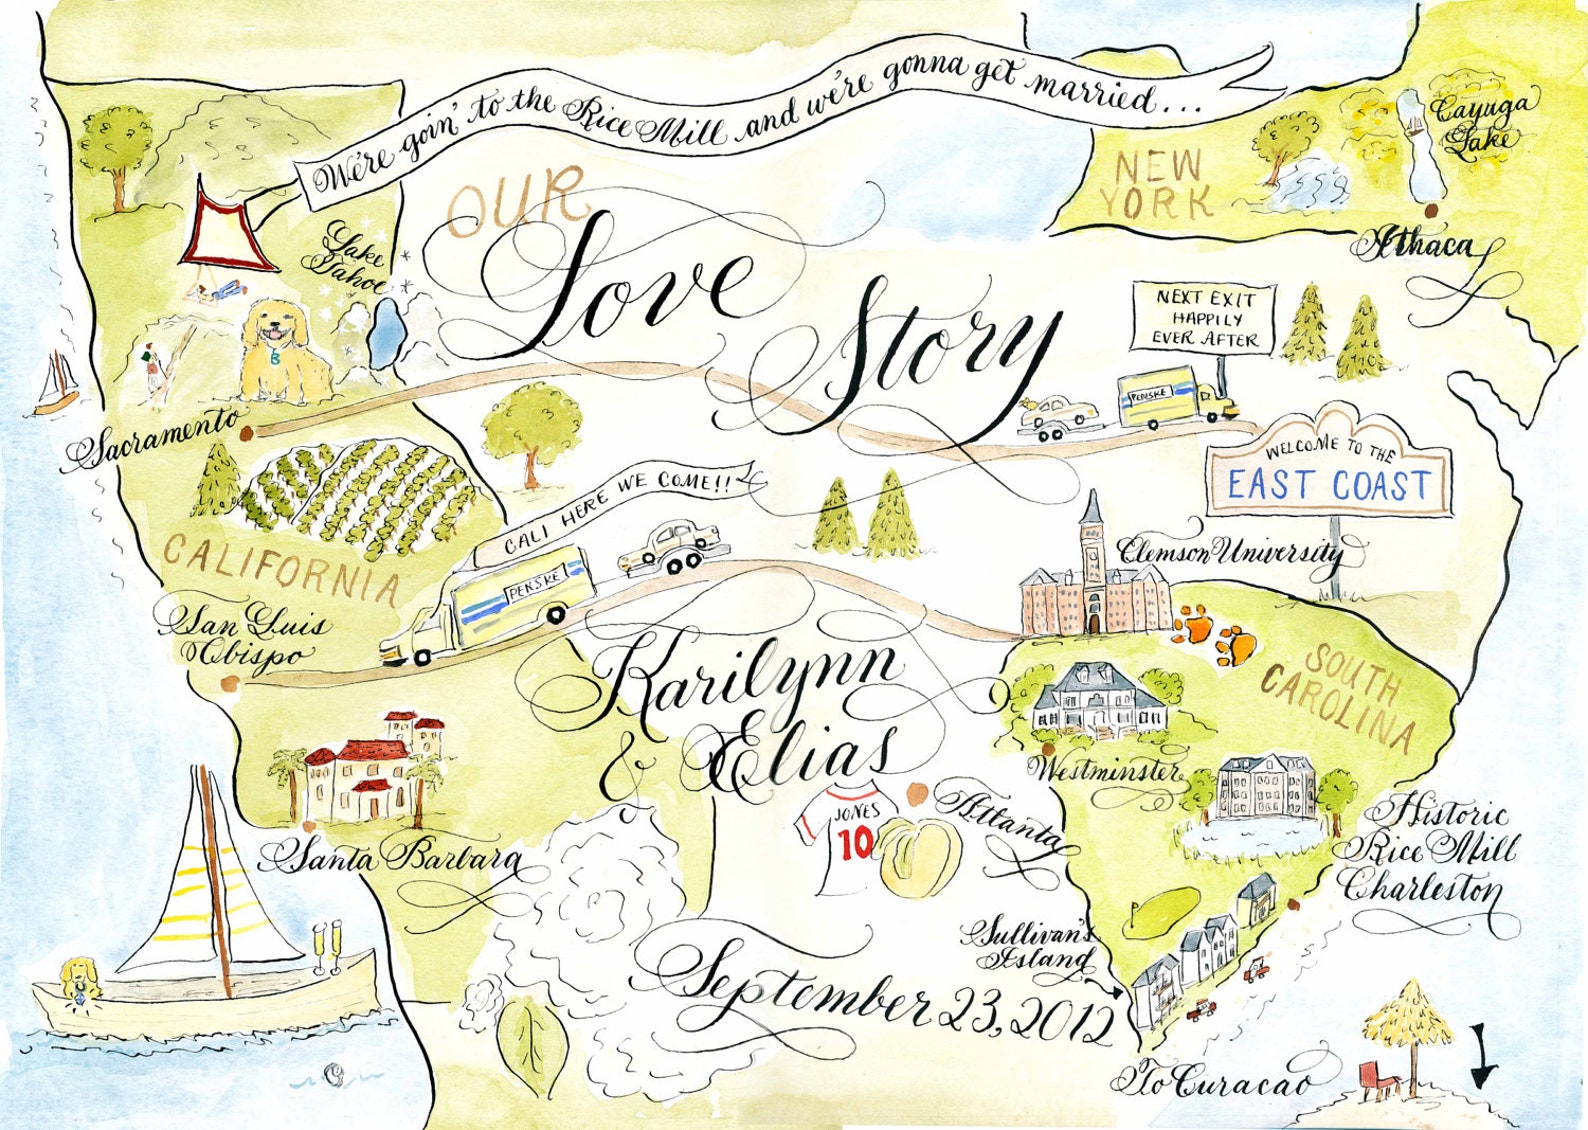 We're goin' to the Rice Mill and we're gonna get married...
OUR
Love
Story
NEW
YORK
Cayuga
Lake
Ithaca
Lake
Tahoe
B
Sacramento
NEXT EXIT
HAPPILY
EVER AFTER
PENSKE
WELCOME TO THE
EAST COAST
CALIFORNIA
CALI HERE WE COME!!
PENSKE
San Luis
Obispo
Clemson University
SOUTH
CAROLINA
Karilynn
& Elias
Westminster
JONES
10
Atlanta
Santa Barbara
Historic
Rice Mill
Charleston
Sullivan's
Island
September 23, 2012
To Curacao